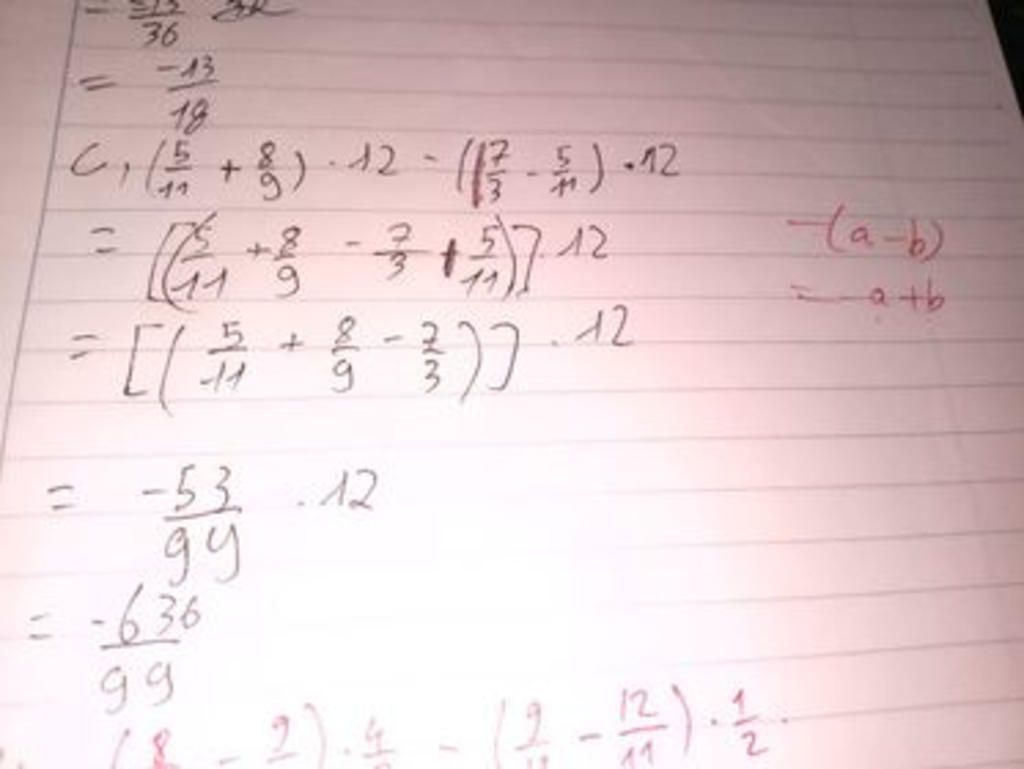 = -13/36
= -13/18
C, (5/11 + 8/9) . 12 - (7/3 - 5/11) . 12
= [(5/11 + 8/9 - 7/3 + 5/11)] . 12
-(a-b)
= -a+b
= [(5/11 + 8/9 - 7/3)] . 12
= -53/99 . 12
= -636/99
(8 - 9) . 4 - (9/11 - 12/11) . 1/2 .